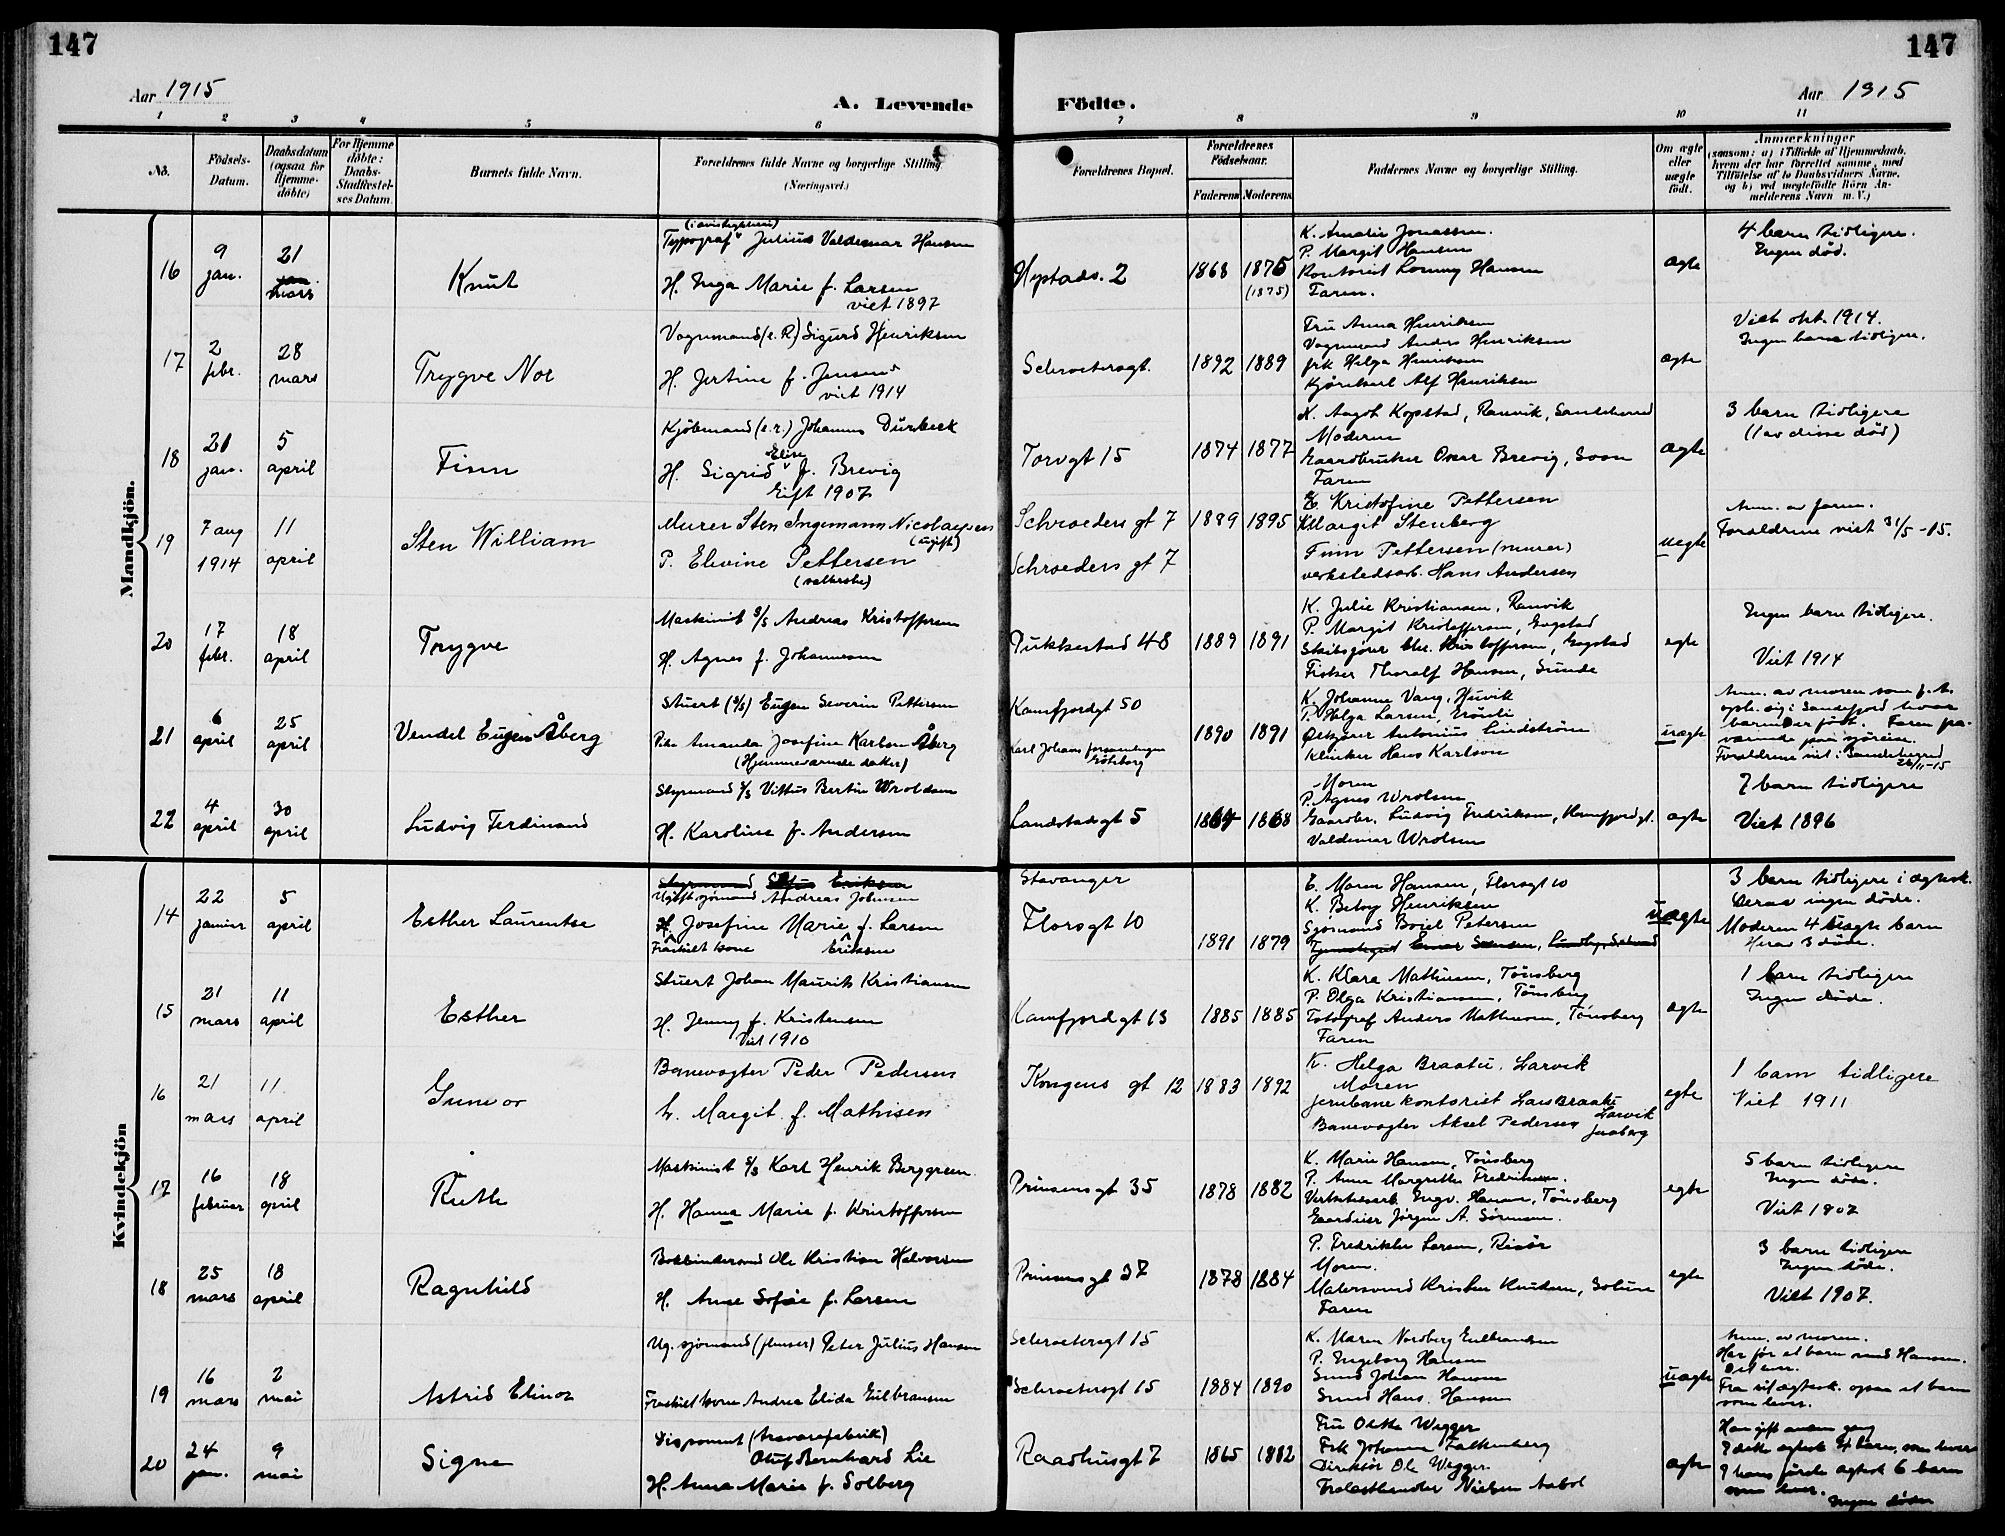 147
147
Aar 1915
A. Levende
Födte.
Aar 1915
1 2 3 4 5 6 7 8 9 10 11
No.
Födsels-Datum.
Daabsdatum (ogsaa for Hjemme-döbte)
For Hjemme döbte: Daabs-Stadfæstel-ses Datum.
Barnets fulde Navn.
Forældrenes fulde Navne og borgerlige Stilling
(Næringsvei.)
Forældrenes Bopæl.
Forældrenes Födselsaar.
Faderens Moderens
Faddernes Navne og borgerlige Stilling.
Om ægte eller uægte født.
Anmærkninger
(saasom: a) i Tilfælde af Hjemmedaab, hvem der har forrettet samme, med Tilföielse af to Daabsvidners Navne, og b) ved uægtefödte Börn An-melderens Navn m. V.)
Mandkjön.
16
9 jan.
21 mars
Knut
Typograf Julius Valdemar Hansen
H. Inga Marie f. Larsen
viet 1897
2
1868 1875
(1875)
K. Amalie Jonassen.
P. Margit Hansen
Kontorist Hansen
Faren.
ægte
4 barn tidligere.
Ingen død.
17
2 febr.
28 mars
Trygve Nor
Vognmand (e.R.) Sigurd Henriksen
H. Jertine f. Jensen
viet 1914
Schroetersgt.
1892 1889
Fru Anna Henriksen
Vognmand Anders Henriksen
frk Helga Henriksen
Kjørekarl Alf Henriksen
ægte
Viet okt. 1914.
Ingen barn tidligere.
18
jan.
5 april
Finn
Kjöbmand (e.r.) Johannes Dürbeck
H. Sigrid Elise f. Brevig
Gift 1907
Torvgt 15
1874 1877
K. Aagot Kopstad, Ranvik, Sandeherred
Moderen
Gaardbruker Oscar Brevig, Soon
Faren
ægte
3 barn tidligere
(1 av disse død)
19
7 aug 1914
11 april
Sten William
Murer Sten Ingemann Nicolaysen
(ugift)
P. Elevine Pettersen
Schroeders gt 7
Schroeders gt 7
1889 1895
E. Kristofine Pettersen
K Margit Stenberg
Finn Pettersen (murer)
verkstedsarb. Hans Andersen
uegte
Anm. av faren.
Foraldrene viet 31/5-15.
20
17 febr.
18 april
Trygve
Maskinist s/s Andreas Kristoffersen
H. Agnes f. Johannesen
Pukkestad 48
1889 1891
K. Julie Kristiansen, Ranvik
P. Margit Kristoffersen, Engstad
Skibsfører Chr. Kristoffersen, Engstad
Fisker Thoralf Hansen, Sunde
egte
Ingen barn tidligere.
Viet 1914
21
6 april
25 april
Vendel Eugen Åberg
Stuert (s/s) Eugen Severin Pettersen
Pike Amanda Josefine Karlson Åberg
(Hjemmevarende datter)
Kamfjordgt 50
Karl Johans forsamlingen Göteborg
1890 1891
K. Johanne Vang, Huvik
P. Helga Larsen,
Antonius Lindstrøm
Klinker Hans Karlson
uægte
Anm. av moren som f.t.
oph. sig i Sandefjord hvor
barnet er født. Faren fra-
værende paa sjøreise.
Foraldrene viet i Sandeherred
26/11-15
22
4 april
30 april
Ludvig Ferdinand
Styrmand s/s Vittus Bertin Wroldsen
H. Karoline f. Andersen
Landstadsgt 5
1864 1868
Moren
P. Agnes Wrolsen
Gaardbr. Ludvig Fredriksen, Kamfjordgt.
Valdemar Wrolsen
ægte
7 barn tidligere
Viet 1896
Kvindekjön
14
22 januar
5 april
Esther Laurentse
Styrmand Eriksen
Ugift sjømand Andreas Johnsen
H. Josefine Marie f. Larsen
Fraskilt kone Eriksen
Stavanger
Florsgt 10
1891 1879
E. Maren Hansen, Florsgt 10
K. Betsy Henriksen
Sjømand Bojel Petersen
uægte
3 barn tidligere i ægtesk.
Derav ingen døde.
Moderen 4 uægte barn
Herav 3 døde.
15
21 mars
11 april
Esther
Stuert Johan Maurits Kristiansen
H. Jenny f. Kristensen
Viet 1910
Kamfjordgt 13
1885 1885
K. Klara Mathisen, Tönsberg
P. Olga Kristiansen, Tönsberg
Fotograf Anders Mathisen, Tönsberg
Faren
ægte
1 barn tidligere
Ingen døde.
16
21 mars
11. april
Gunvor
Banevogter Peder Pedersen
h. Margit f. Mathisen
Kongens gt 12
1883 1892
K. Helga Braatu, Larvik
Moren
Jernbanekontorist Lars Braatu Larvik
Banevogter Aksel Pedersen
egte
1 barn tidligere
Viet 1911
17
16 februar
18 april
Ruth
Maskinist s/s Karl Henrik Berggreen
H. Hanna Marie f. Kristoffersen
Prinsensgt 35
1878 1882
K. Marie Hansen, Tönsberg
P. Anne Margrethe Fredriksen.
Verkstedsarb. Ingv. Hansen, Tönsberg
Gaardeier Jørgen A. Sörensen.
egte
5 barn tidligere
Ingen døde.
Viet 1907
18
25 mars
18 april
Ragnhild
Bokbindersvend Ole Kristian Halvorsen
H. Anne Sofie f. Larsen
Prinsensgt 37
1878 1884
P. Fredrikke Larsen, Risör
Moren.
Malersvend Kristen Knutsen, Solum
Faren
egte
3 barn tidligere
Ingen døde.
Viet 1907.
19
16 mars
2 mai
Astrid Elinor
Ug. sjømand (flenser) Peter Julius Hansen
Fraskilt kone Andrea Elida Gulbransen
Schroetersgt 15
Schroetersgt 15
1884 1890
K. Maren Nordberg Gulbrandsen
P. Ingeborg Hansen
Smed Johan Hansen
Smed Hans Hansen
uægte
Anm. av moren.
Har før et barn med Hansen.
Det lever.
Fra sit ægtesk. ogsaa et barn
som lever.
20
24 jan.
9 mai
Signe
Disponent (tranvarefabrik)
Oluf Bernhard Lie
H. Anna Marie f. Solberg
Raadhusgt 7
1865 1882
Fru Olette Wegger
Frk Johanne Falkenberg
Direktör Ole Wegger
Trælasthandler Nielsen Aabol
ægte
Han gift anden gang
I dette ægtesk 4 barn, som lever
I hans første ægtesk 6 barn
som lever.
Ingen døde